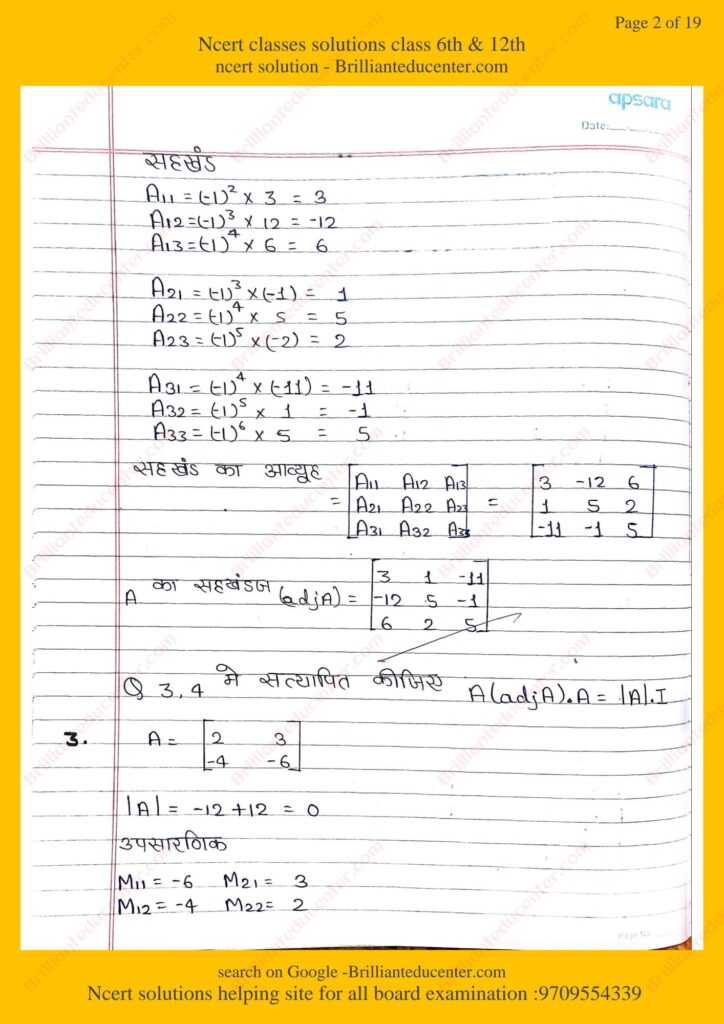 Page 2 of 19
Ncert classes solutions class 6th & 12th
ncert solution - Brillianteducenter.com
apsara
Date:
सहखंड
A11 = (-1)² × 3 = 3
A12 = (-1)³ × 12 = -12
A13 = (-1)⁴ × 6 = 6
A21 = (-1)³ × (-1) = 1
A22 = (-1)⁴ × 5 = 5
A23 = (-1)⁵ × (-2) = 2
A31 = (-1)⁴ × (-11) = -11
A32 = (-1)⁵ × 1 = -1
A33 = (-1)⁶ × 5 = 5
सहखंड का आव्यूह = [A11 A12 A13 = [3 -12 6
A21 A22 A23 1 5 2
A31 A32 A33] -11 -1 5]
A का सहखंडज (adjA) = [3 1 -11
-12 5 -1
6 2 5]
Q 3,4 मे सत्यापित कीजिए A(adjA).A = |A|.I
3. A = [2 3
-4 -6]
|A| = -12 + 12 = 0
उपसारणिक
M11 = -6 M21 = 3
M12 = -4 M22 = 2
Page No
search on Google -Brillianteducenter.com
Ncert solutions helping site for all board examination :9709554339
Brillianteducenter.com